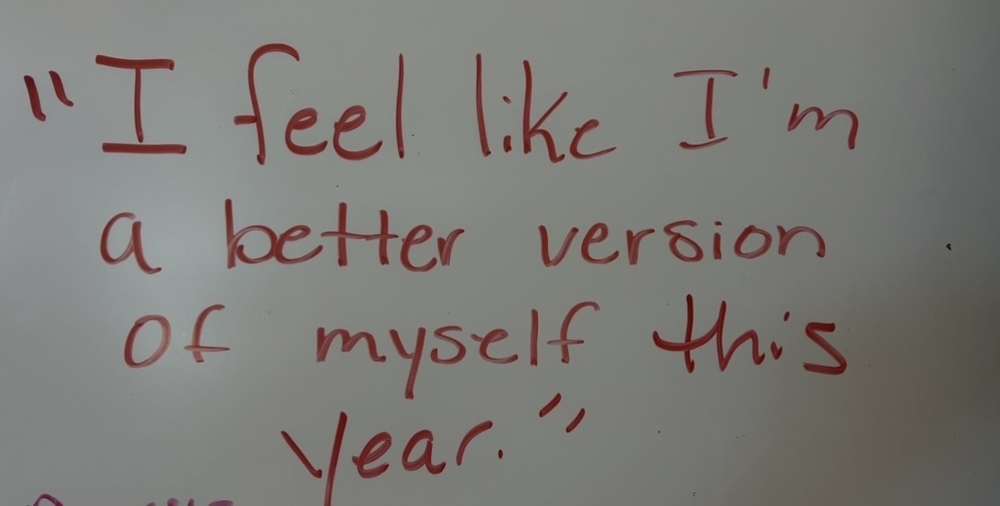 "I feel like I'm
a better version
of myself this
year."